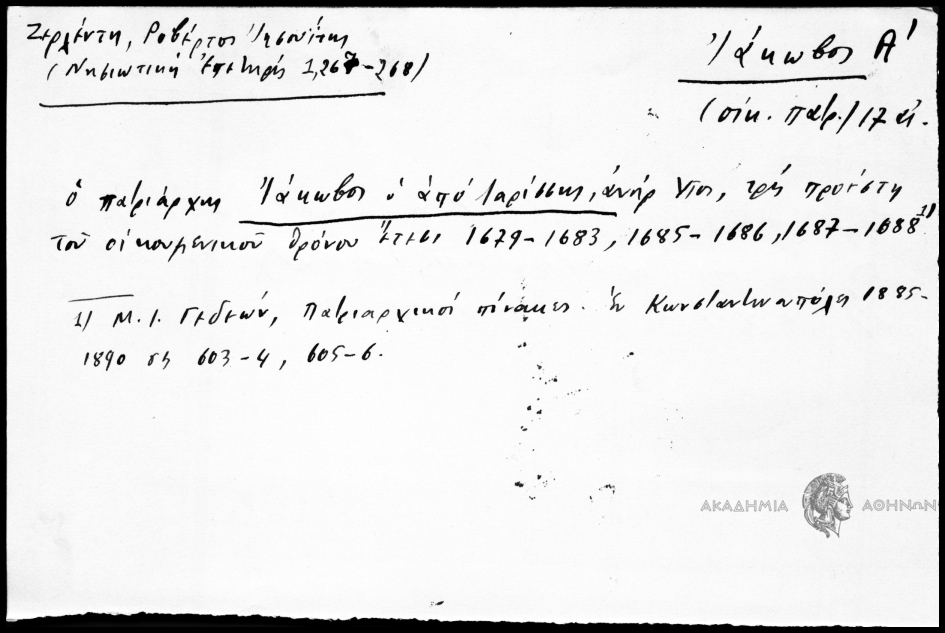 Ζερλέντη, Ροβέρτος Ἰησουίτης
(Νησιωτική Ἐπετηρίς 1,267-268)
Ἰάκωβος Α'
(οἰκ. πατρ.) 17 αἰ.
ὁ πατριάρχης Ἰάκωβος ὁ ἀπό Λαρίσσης, ἀνήρ Χῖος, τρίς προέστη
τοῦ οἰκουμενικοῦ θρόνου ἔτεσι 1679-1683, 1685-1686, 1687-1688 1)
1) Μ. Ι. Γεδεών, Πατριαρχικοί πίνακες. Ἐν Κωνσταντινουπόλει 1885-
1890 σελ. 603-4, 605-6.
ΑΚΑΔΗΜΙΑ ΑΘΗΝΩΝ